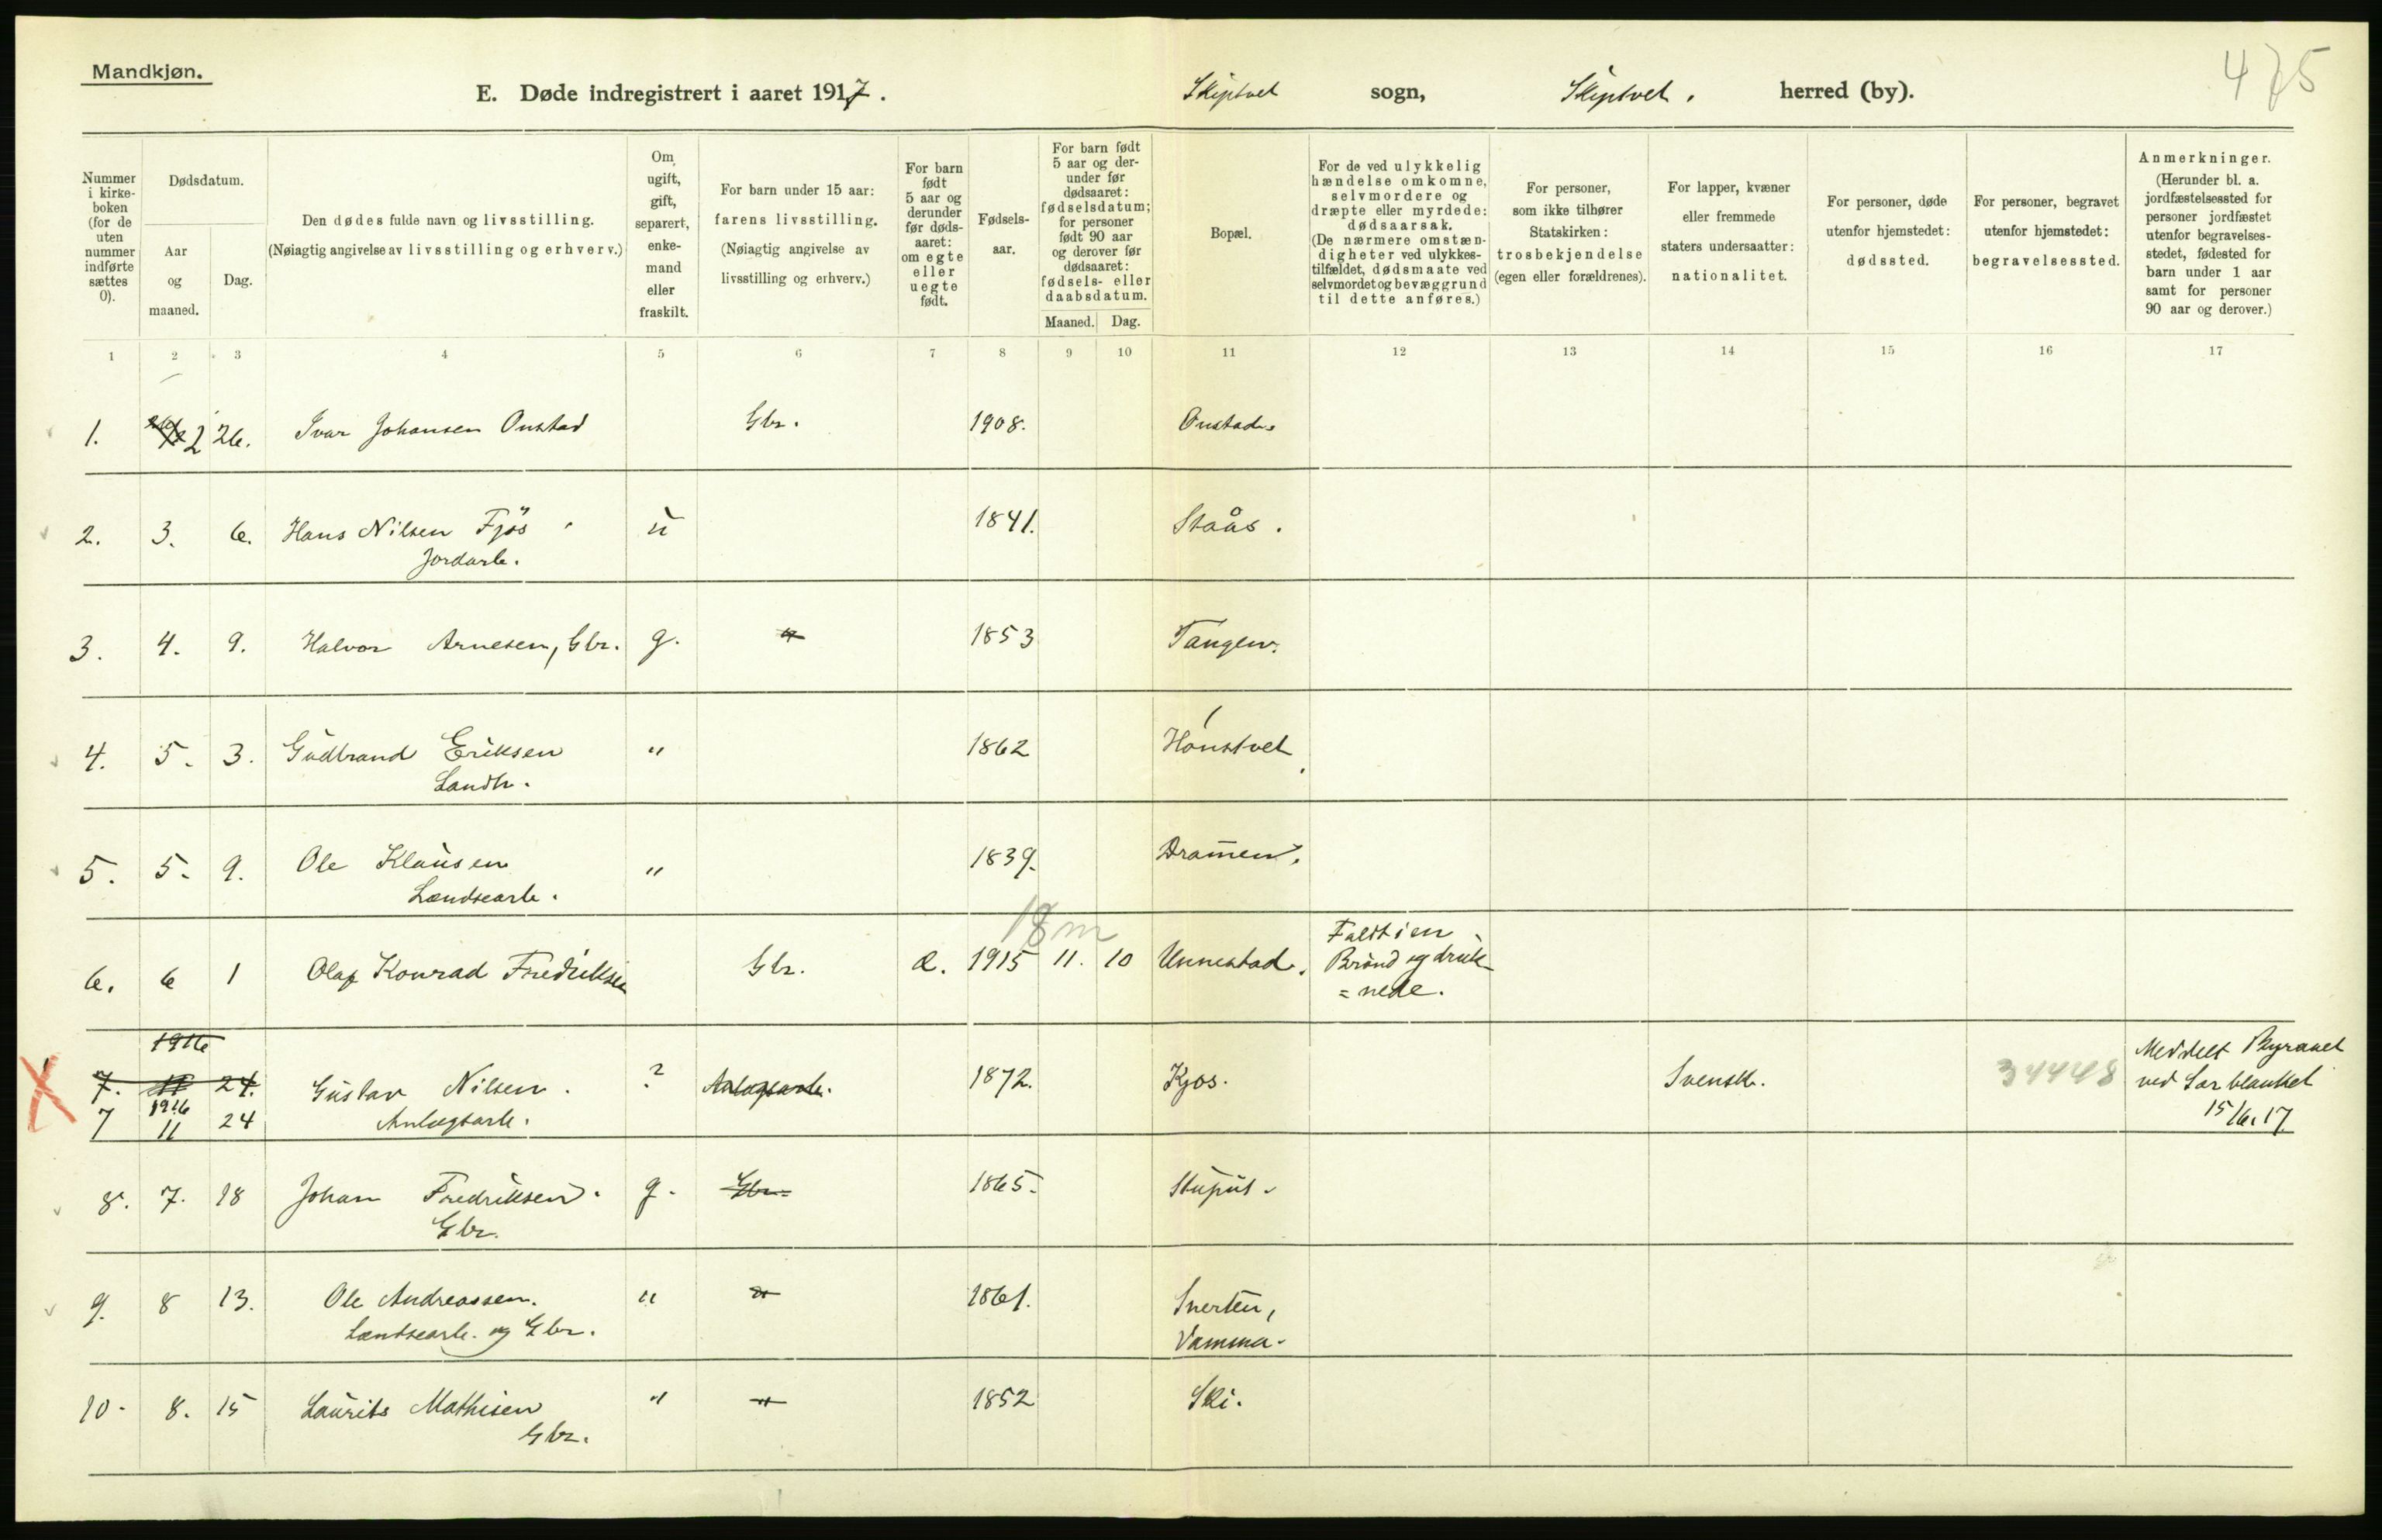 Mandkjøn.
E. Døde indregistrert i aaret 1917.
Skiptvet sogn, Skiptvet. herred (by).
475
Nummer i kirke-boken (for de uten nummer indførte sættes 0).
Dødsdatum.
Aar og maaned.
Dag.
Den dødes fulde navn og livsstilling.
(Nøiagtig angivelse av livsstilling og erhverv.)
Om ugift, gift, separert, enke-mand eller fraskilt.
For barn under 15 aar:
farens livsstilling.
(Nøiagtig angivelse av livsstilling og erhverv.)
For barn født 5 aar og derunder før døds-aaret: om egte eller uegte født.
Fødsels-aar.
For barn født 5 aar og der-under før dødsaaret: fødselsdatum; for personer født 90 aar og derover før dødsaaret: fødsels- eller daabsdatum.
Maaned. Dag.
Bopæl.
For de ved ulykkelig hændelse omkomne, selvmordere og dræpte eller myrdede: dødsaarsak.
(De nærmere omstæn-digheter ved ulykkes-tilfældet, dødsmaate ved selvmordet og bevæggrund til dette anføres.)
For personer, som ikke tilhører Statskirken: trosbekjendelse (egen eller forældrenes).
For lapper, kvæner eller fremmede staters undersaatter: nationalitet.
For personer, døde utenfor hjemstedet: dødssted.
For personer, begravet utenfor hjemstedet: begravelsessted.
Anmerkninger.
(Herunder bl. a. jordfæstelsessted for personer jordfæstet utenfor begravelses-stedet, fødested for barn under 1 aar samt for personer 90 aar og derover.)
1 2 3 4 5 6 7 8 9 10 11 12 13 14 15 16 17
1. 2 26. Ivar Johansen Onstad Gbr. 1908. Onstad.
2. 3. 6. Hans Nilsen Fjös u 1841. Staås.
Jordarb.
3. 4. 9. Halvor Arnesen, Gbr. g. " 1853 Tangen.
4. 5. 3. Gudbrand Eriksen " 1862 Hönstvet.
Landh.
5. 5. 9. Ole Klausen " 1839. Dramen.
Lændsearb.
18 m
6. 6 1 Olaf Konrad Fredriksen Gbr. æ. 1915 11. 10 Unnestad. Faldt i en
Brönd og druk-
=nede.
1916
7. 11 24. Gustav Nilsen. ? Anlægsarb. 1872. Kjos. Svensk. 34448 Meddelt Byraaet
ved Sær blanket
15/6.17.
7 1916 11 24 Anlægsarb.
8. 7. 18 Johan Fredriksen. g. Gbr. 1865. Stupul.
Gbr.
9. 8 13. Ole Andreassen. " " 1861. Sverten,
Lændsearb. og Gbr. Vamma.
10. 8. 15 Laurits Mathisen " " 1852 Ski.
Gbr.